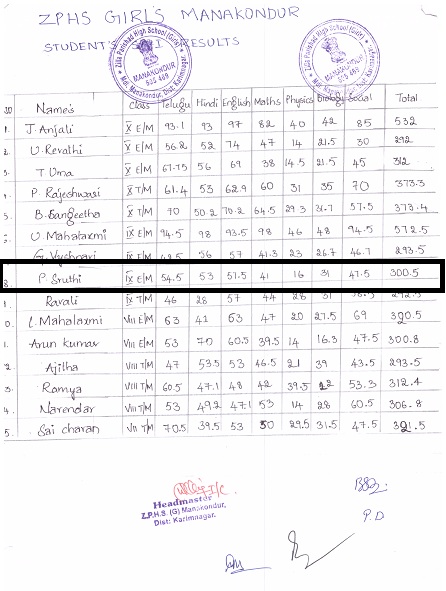 ZPHS GIRL'S MANAKONDUR
STUDENT'S RESULTS
Zilla Parishad High School (Girls)
MANAKONDUR
505 469
Name's Class Telugu Hindi English Maths Physics Biology Social Total
1. J. Anjali X E/M 93.1 93 97 82 40 42 85 532
2. U. Revathi X E/M 56.2 52 74 47 14 21.5 30 292
T. Uma X E/M 67.75 56 69 38 14.5 21.5 45 312
P. Rajeshwari X T/M 61.4 53 62.9 60 31 35 70 373.3
B. Sangeetha X T/M 70 50.2 70.2 64.5 29.3 31.7 57.5 373.4
U. Mahalaxmi E/M 94.5 98 93.5 98 46 48 94.5 572.5
G. Vyshnavi E/M 56 57 41.3 23 26.7 46.7 293.5
8. P. Sruthi IX E/M 54.5 53 57.5 41 16 31 47.5 300.5
Ravali IX T/M 46 28 57 44 28 31 292.5
L. Mahalaxmi VIII E/M 63 41 63 47 20 27.5 69 320.5
Arun kumar VIII E/M 53 70 60.5 39.5 14 16.3 47.5 300.8
Ajilha VIII T/M 47 53.5 53 46.5 21 39 43.5 293.5
Ramya VIII T/M 60.5 47.1 48 42 39.5 22 53.3 312.4
Narendar VIII T/M 53 49.2 47.1 53 14 28 60.5 306.8
Sai charan VII T/M 70.5 39.5 53 50 29.5 31.5 47.5 321.5
Headmaster
Z.P.H.S. (G) Manakondur,
Dist: Karimnagar.
P.D